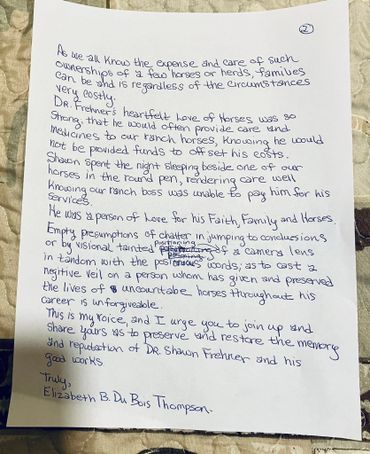 2
As we all know the expense and care of such
ownerships of a few horses or herds, families
can be and is regardless of the circumstances
very costly.
DR. Frehner's heartfelt Love of Horses was so
strong, that he would often provide care and
medicines to our ranch horses, knowing he would
not be provided funds to off set his costs.
Shawn spent the night sleeping beside one of our
horses in the round pen, rendering care well
knowing our ranch boss was unable to pay him for his
services.
He was a person of Love for his Faith, Family and Horses.
Empty presumptions of chatter in jumping to conclusions
or by visional tainted positioning of a camera lens
in tandom with the words, as to cast a
negitive veil on a person whom has given and preserved
the lives of uncountabe horses throughout his
career is unforgiveable.
This is my voice, and I urge you to join up and
share yours as to preserve and restore the memory
and reputation of DR. Shawn Frehner and his
good works.
Truly,
Elizabeth B. Du Bois Thompson.